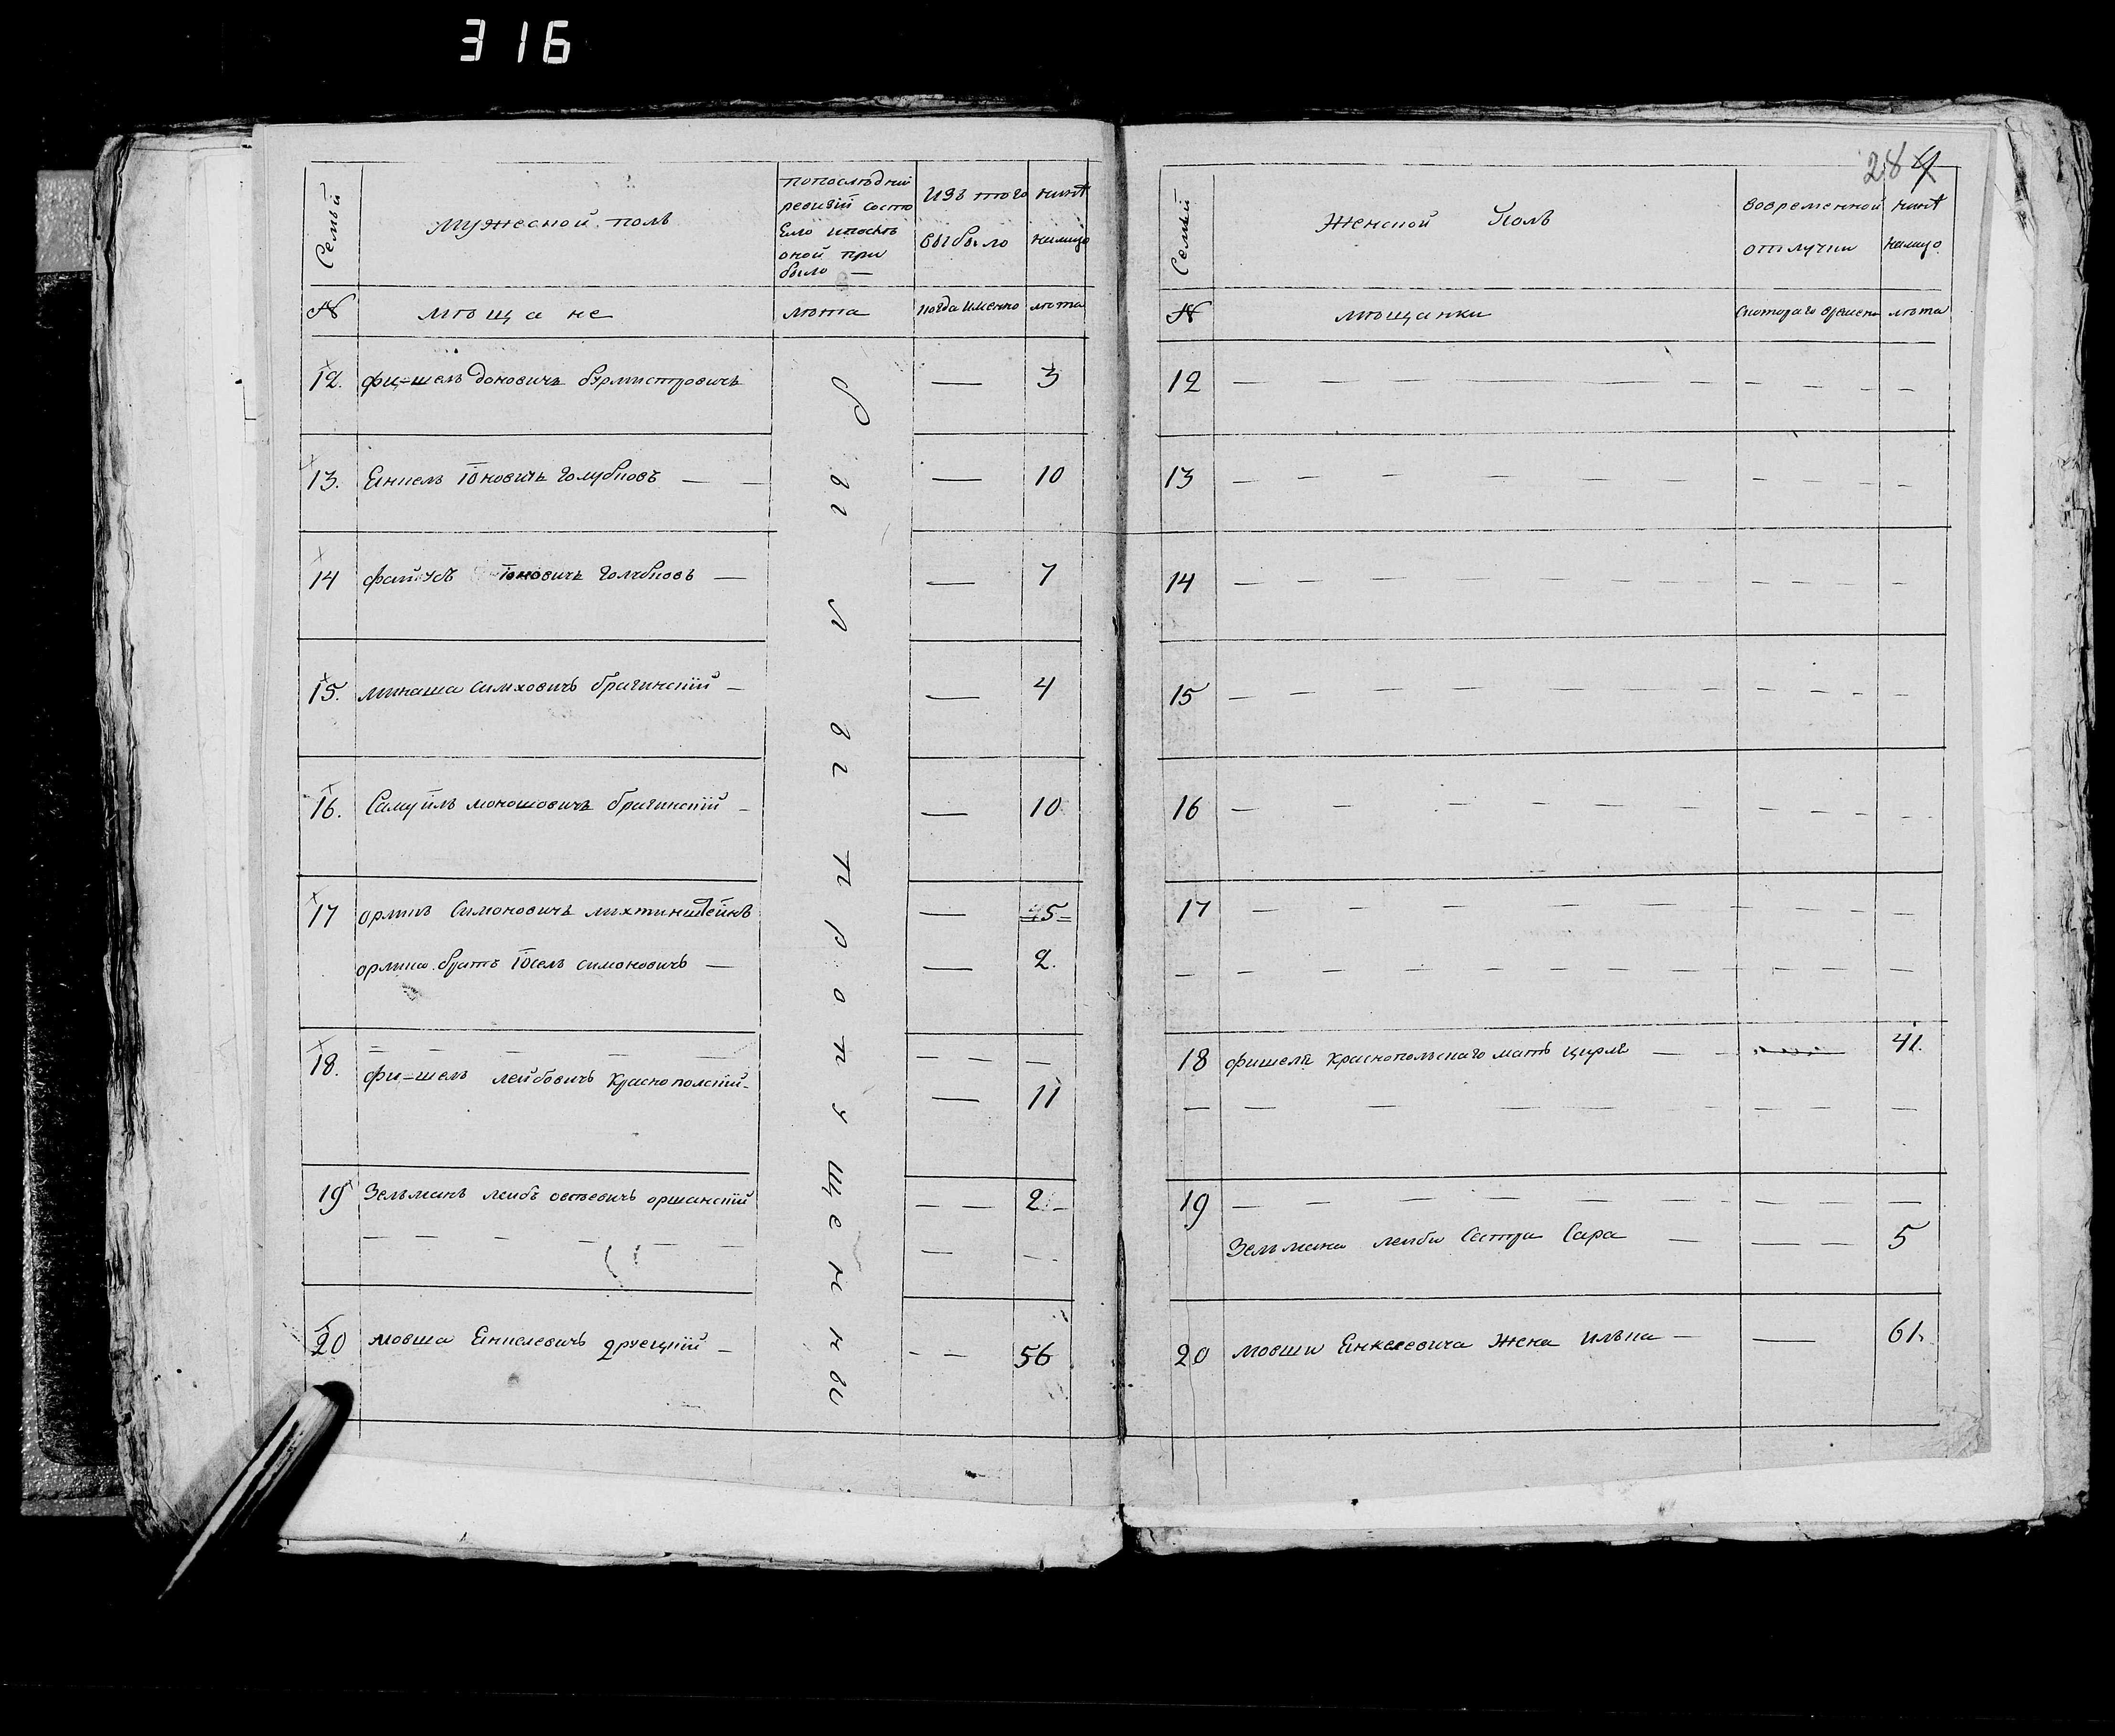 316
284
Семьи
мужеской полъ
попоследней ревизіи состояло и после оной прибыло —
изъ того выбыло
ныне налицо
№
мѣщане
лѣта
когда именно
лѣта
12. фи=шель доновичъ бурмистровичъ — 3
13. Енкель Іоновичъ голубковъ — — — 10
14 Іоновичъ голубковъ — — 7
15. минаша симховичъ брагинскій — — 4
16. Самуилъ моношовичъ брагинскій — — 10
17 Симоновичъ лихтинштейнъ — 45
братъ Іосель симоновичъ — — 2.
18. — — — — — — — —
фи=шель лейбовичъ краснополскій — — 11
19 Зельманъ лейбъ овсѣевичъ оршанскій — — 2. —
— — — — — — — —
20 мовша Енкелевичъ друецкій — — — 56
были пропущенны
Семьи
Женской Полъ
вовременной отлучки
ныне налицо
№
мѣщанки
скотораго время
лѣта
12 — — — — — — — —
13 — — — — — — — —
14 — — — — — — — —
15 — — — — — — — —
16 — — — — — — — —
17 — — — — — — — —
— — — — — — — —
18 фишеля краснопольскаго мать цирля — — 41.
— — — — — — — —
19 — — — — — — — —
Зельмана лейбы Сестра Сара — — — 5
20 мовши Енкелевича жена Илька — — 61.